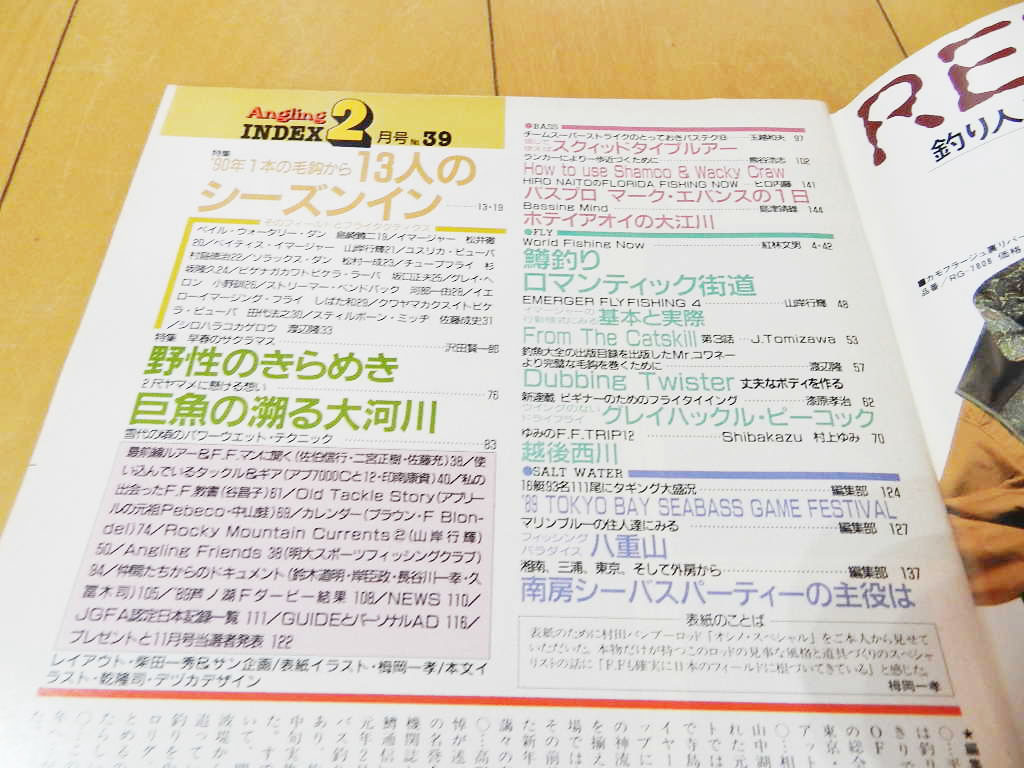 Angling
INDEX 2月号 No.39
特集
'90年1本の毛鉤から13人の
シーズンイン 13・19
そのフィールドとフライタクティクス
ペイル・ウォータリー・ダン 島崎憲二19／イマージャー 松井徹
20／ベイティス・イマージャー 山岸行輝21／ユスリカ・ピューパ
村島徳治22／ソラックス・ダン 松村一成23／チューブフライ 杉
坂隆久24／ヒゲナガカワトビケラ・ラーバ 坂口正夫26／グレイ・ヘ
ロン 小野訓26／ストリーマー・ベンドバック 河部一由28／イエ
ローイマージング・フライ しばた和29／クワヤマカクスイトビケ
ラ・ピューパ 田代法之30／スティルボーン・ミッヂ 佐藤成史31
／シロハラコカゲロウ 渡辺隆33
特集 早春のサクラマス 沢田賢一郎
野性のきらめき
2尺ヤマメに懸ける想い 76
巨魚の溯る大河川
雪代の頃のパワーウェット・テクニック 83
最前線ルアー&F.F.マンに聞く(佐伯信行・二宮正樹・佐藤充)38／使
い込んでいるタックル&ギア(アブ7000Cと12・印南康資)40／私の
出会ったF.F.教書(谷昌子)61／Old Tackle Story(アブリー
ルの元祖Pebeco・中山魅)69／カレンダー(ブラウン・F Blon-
del)74／Rocky Mountain Currents2(山岸行輝)
50／Angling Friends 38(明大スポーツフィッシングクラブ)
94／仲間たちからのドキュメント(鈴木道明・岸臣政・長谷川一幸・久
冨木司)105／'89芦ノ湖Fダービー結果 108／NEWS 110／
JGFA認定日本記録一覧 111／GUIDEとパーソナルAD 116／
プレゼントと11月号当選者発表 122
レイアウト・柴田一秀&サン企画／表紙イラスト・栂岡一孝／本文イ
ラスト・乾隆司・デヅカデザイン
●BASS
チームスーパーストライクのとっておきバステク8 玉越和夫 97
スクィッドタイプルアー
ランカーにより一歩近づくために 熊谷浩志 102
How to use Shamco & Wacky Craw
HIRO NAITOのFLORIDA FISHING NOW ヒロ内藤 141
バスプロ マーク・エバンスの1日
Bassing Mind 島津靖雄 144
ホテイアオイの大江川
●FLY
World Fishing Now 紅林文男 4・42
鱒釣り
ロマンティック街道
EMERGER FLYFISHING 4 山岸行輝 48
イマージャーの
行動様式にみる基本と実際
From The Catskill 第3話 J.Tomizawa 53
釣魚大全の出版目録を出版したMr.コワネー
より完璧な毛鉤を巻くために 渡辺隆 57
Dubbing Twister 丈夫なボディを作る
新連載 ビギナーのためのフライタイイング 漆原孝治 62
ウイングのない
ドライフライ グレイハックル・ピーコック
ゆみのF.F.TRIP12 Shibakazu 村上ゆみ 70
越後西川
●SALT WATER
16艇93名111尾にタギング大盛況 編集部 124
'89 TOKYO BAY SEABASS GAME FESTIVAL
マリンブルーの住人達にみる 編集部 127
フィッシング
パラダイス 八重山
湘南、三浦、東京、そして外房から 編集部 137
南房シーバスパーティーの主役は
表紙のことば
表紙のために村田バンブーロッド「オシノ・スペシャル」をご本人から見せて
いただいた。本物だけが持つこのロッドの見事な風格と道具づくりのスペシャ
リストの話に「F.F.も確実に日本のフィールドに根づいてきている」と感じた。
栂岡一孝
RE
釣り人
■カモフラージュ裏リバー
品番／RG-7808 価格